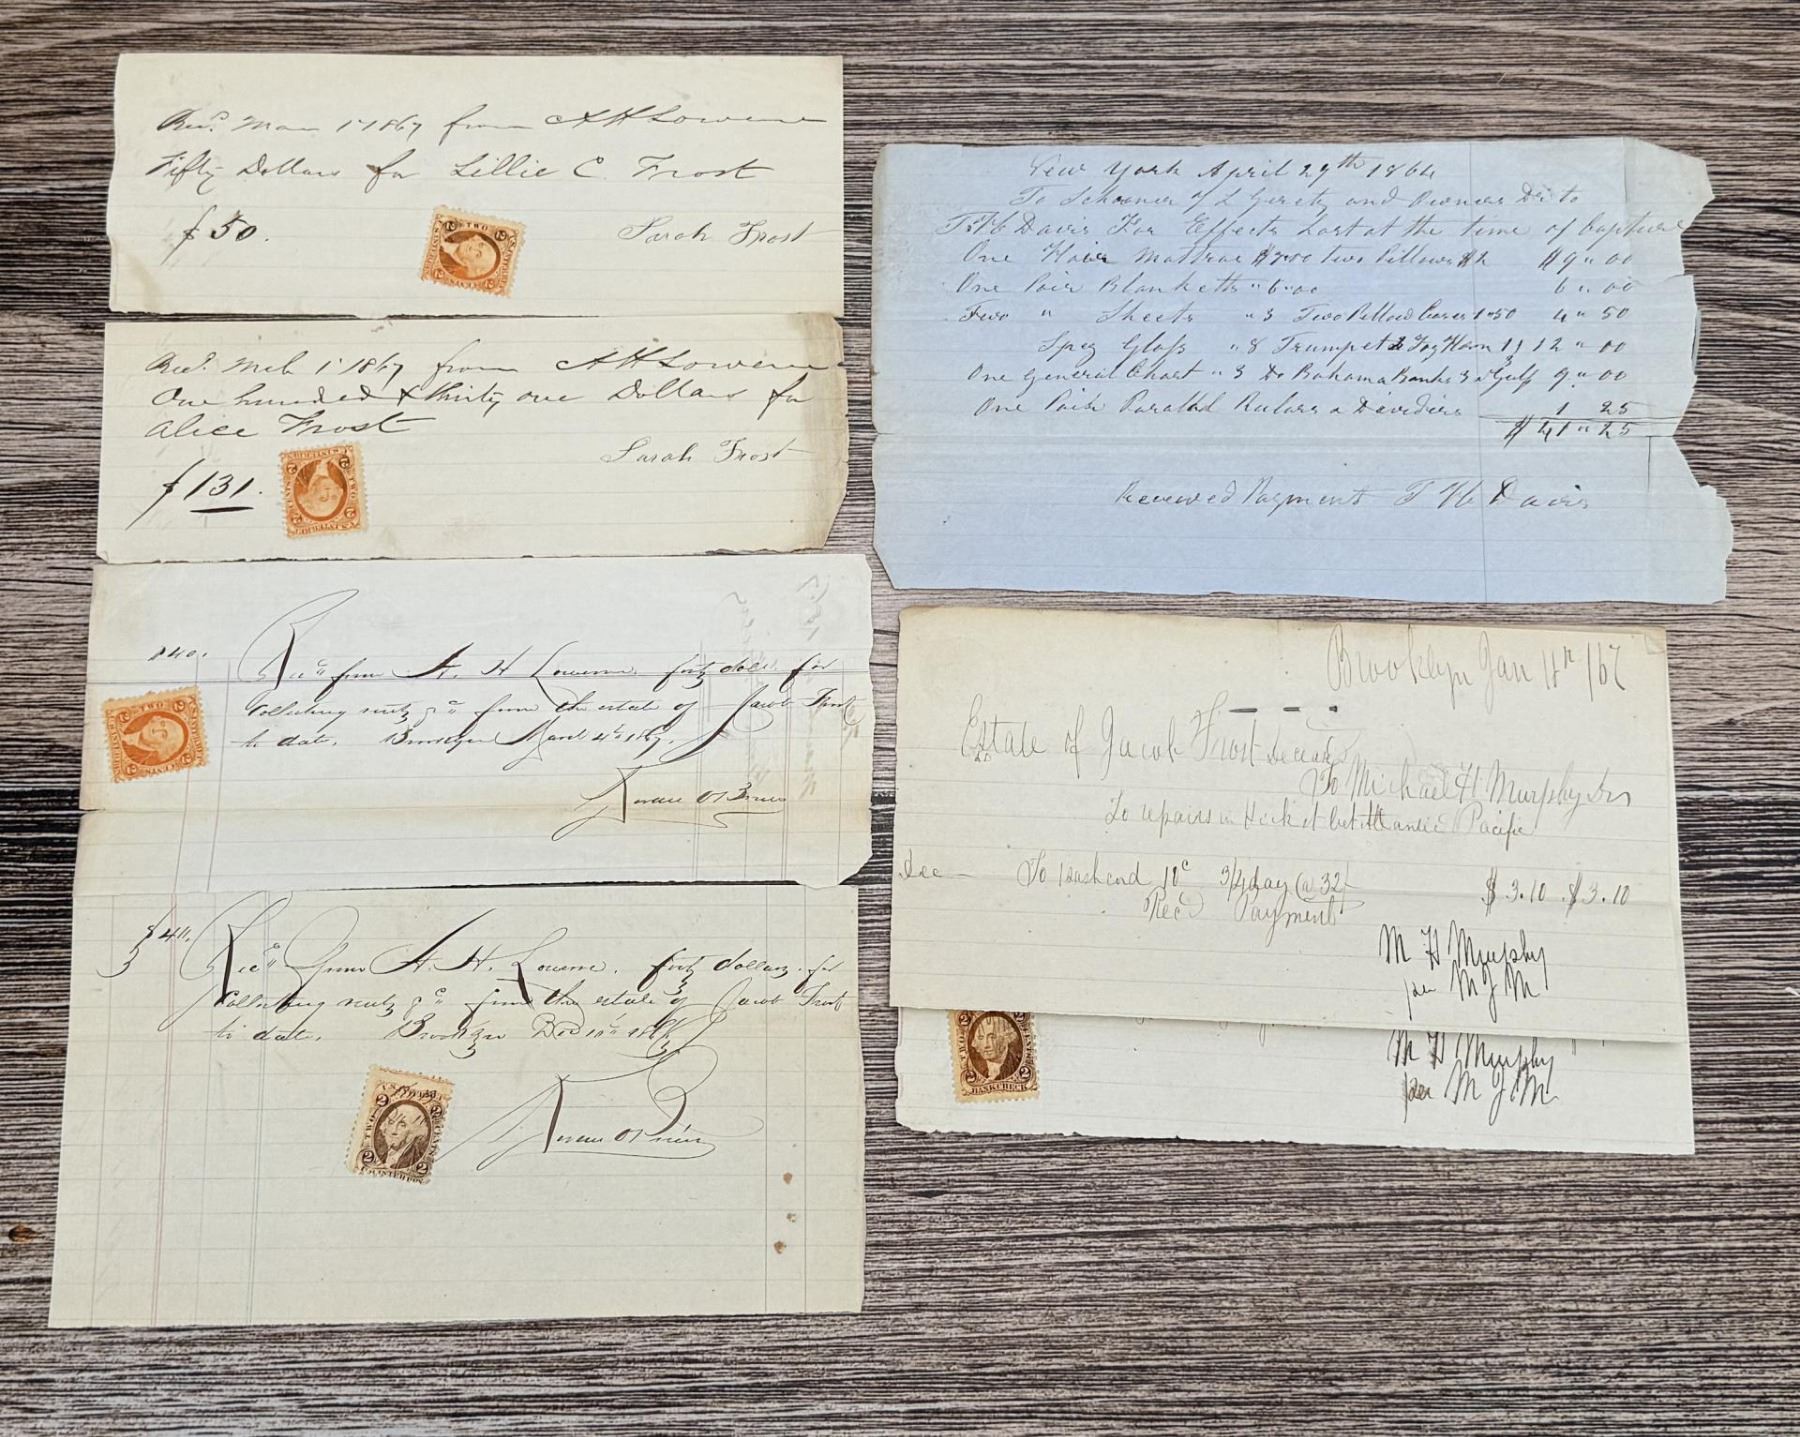 Rec'd Mar 1 1867 from A H Lowerre
Fifty Dollars for Lillie C. Frost
$50.
Sarah Frost
Rec'd Mch 1 1867 from A H Lowerre
One hundred & thirty one Dollars for
Alice Frost
Sarah Frost
$131.
$40. Rec'd from A. H Lowerre. forty dolls for
Collecting rents &c from the estate of Jacob Frost
to date. Brooklyn March 4th 1867.
$40. Rec'd from A. H. Lowerre. forty dollars for
Collecting rents &c from the estate of Jacob Frost
to date. Brooklyn Dec
New York April 29th 1864
To Schooner and Owners Dr to
Davis For Effects Lost at the time of Capture
One Hair Mattras $7.00 two Pillows $2 $9 " 00
One Pair Blanketts " 6 " 00 6 " 00
Two " Sheets " 3 Two Pillow Cases 1.50 4 " 50
Spey Glass " 8 Trumpet & Fog Horn 12 " 00
One General Chart " 3 Do Bahama Banks 3 Gulf 9 " 00
One Pair Parallel Rulers & Dividers 1 25
$ 41 " 25
Received Payment Davis
Brooklyn Jan /67
Estate of Jacob Frost
To Michael H Murphy Dr
To repairs in bet Atlantic Pacific
Dec To 3/4 day @ 32/ $3.10 $3.10
Rec'd Payment
M H Murphy
per M J M
M H Murphy
per M J M
TWO
2
CENTS
BANK CHECK